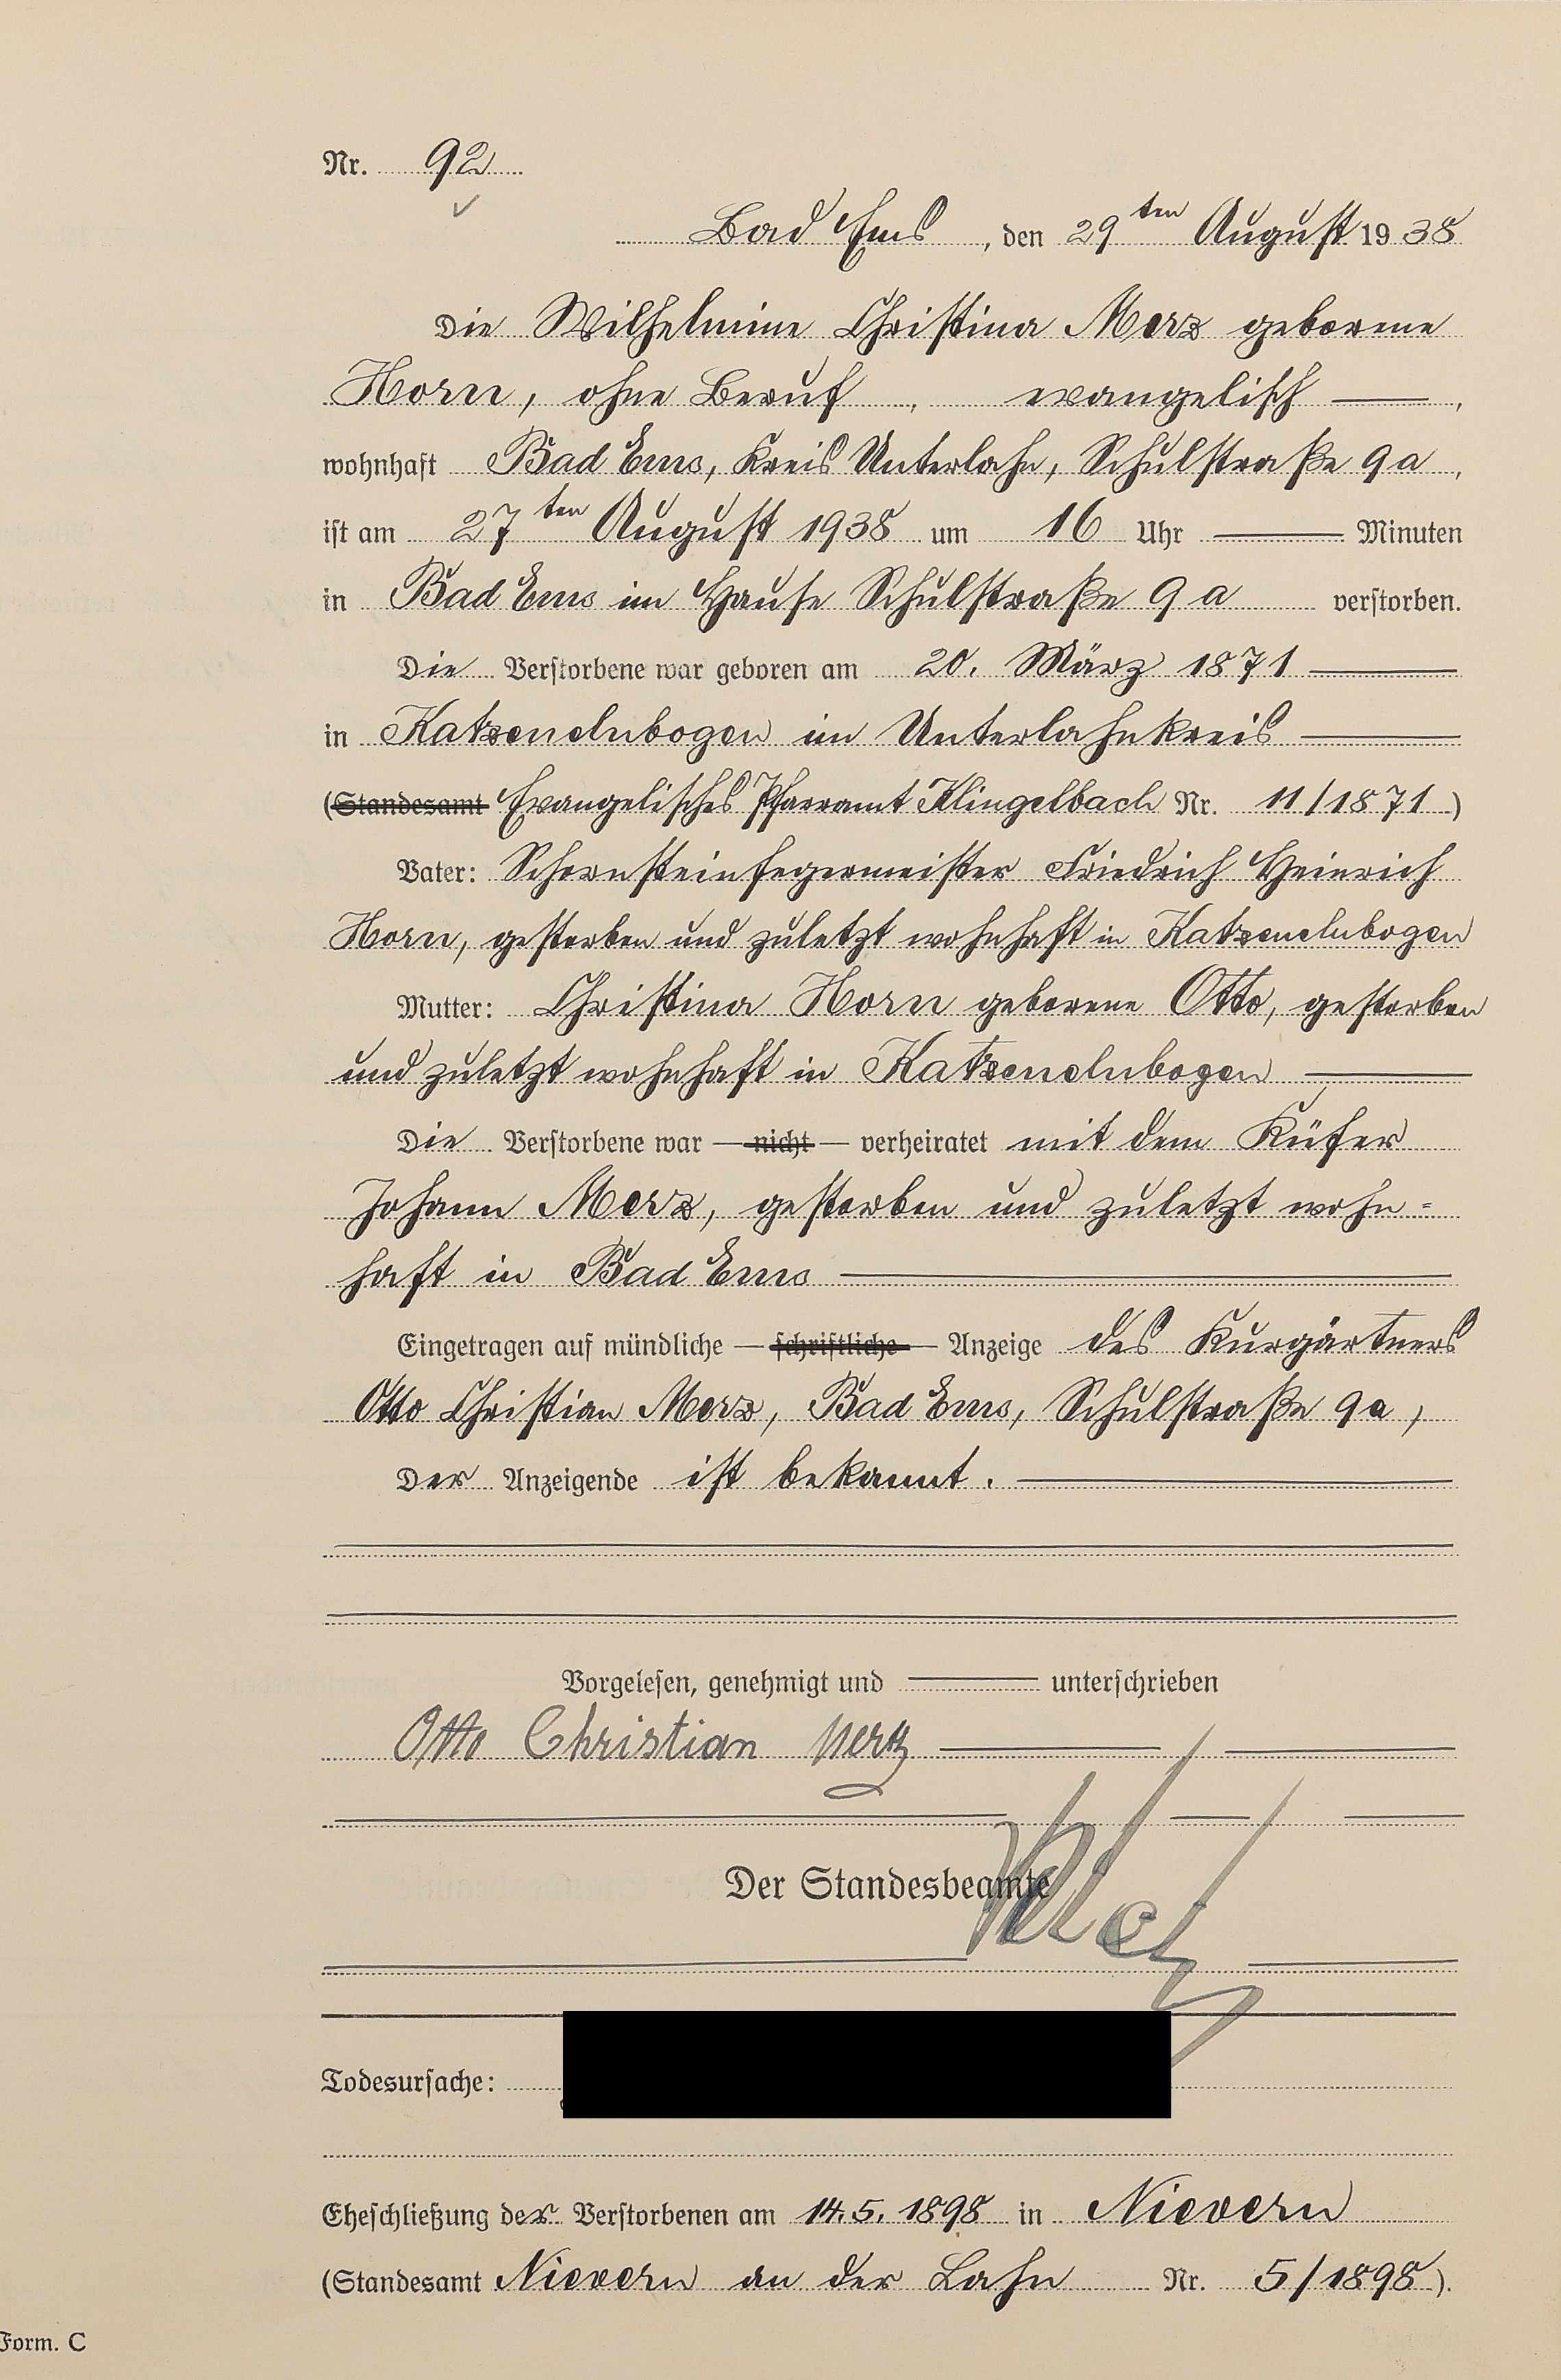 Nr. 92
Bad Ems, den 29ten August 1938
Die Wilhelmine Christina Merz geborene
Horn, ohne Beruf, evangelisch,
wohnhaft Bad Ems, Kreis Unterlahn, Schulstraße 9a,
ist am 27ten August 1938 um 16 Uhr Minuten
in Bad Ems im Hause Schulstraße 9a verstorben.
Die Verstorbene war geboren am 20. März 1871
in Katzenelnbogen im Unterlahnkreis
(Standesamt Evangelisches Pfarramt Klingelbach Nr. 11/1871)
Vater: Schornsteinfegermeister Friedrich Heinrich
Horn, gestorben und zuletzt wohnhaft in Katzenelnbogen
Mutter: Christina Horn geborene Otto, gestorben
und zuletzt wohnhaft in Katzenelnbogen
Die Verstorbene war — nicht — verheiratet mit dem Küfer
Johann Merz, gestorben und zuletzt wohn=
haft in Bad Ems
Eingetragen auf mündliche — schriftliche — Anzeige des Kurgärtners
Otto Christian Merz, Bad Ems, Schulstraße 9a,
Der Anzeigende ist bekannt.
Vorgelesen, genehmigt und unterschrieben
Otto Christian Merz
Der Standesbeamte
Todesursache:
Eheschließung der Verstorbenen am 14.5.1898 in Nievern
(Standesamt Nievern an der Lahn Nr. 5/1898).
Form. C